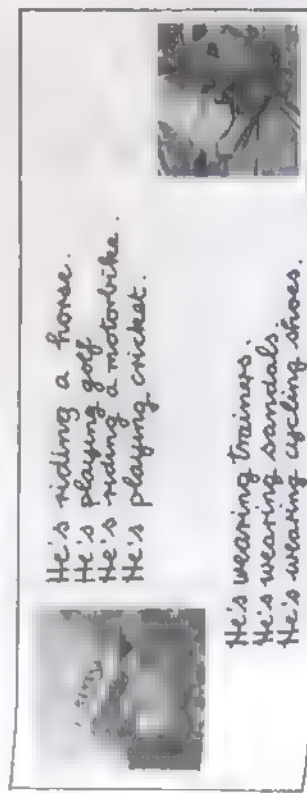 He's riding a horse.
He's playing golf
He's riding a motorbike.
He's playing cricket.
He's wearing trainers.
He's wearing sandals.
He's wearing cycling shoes.